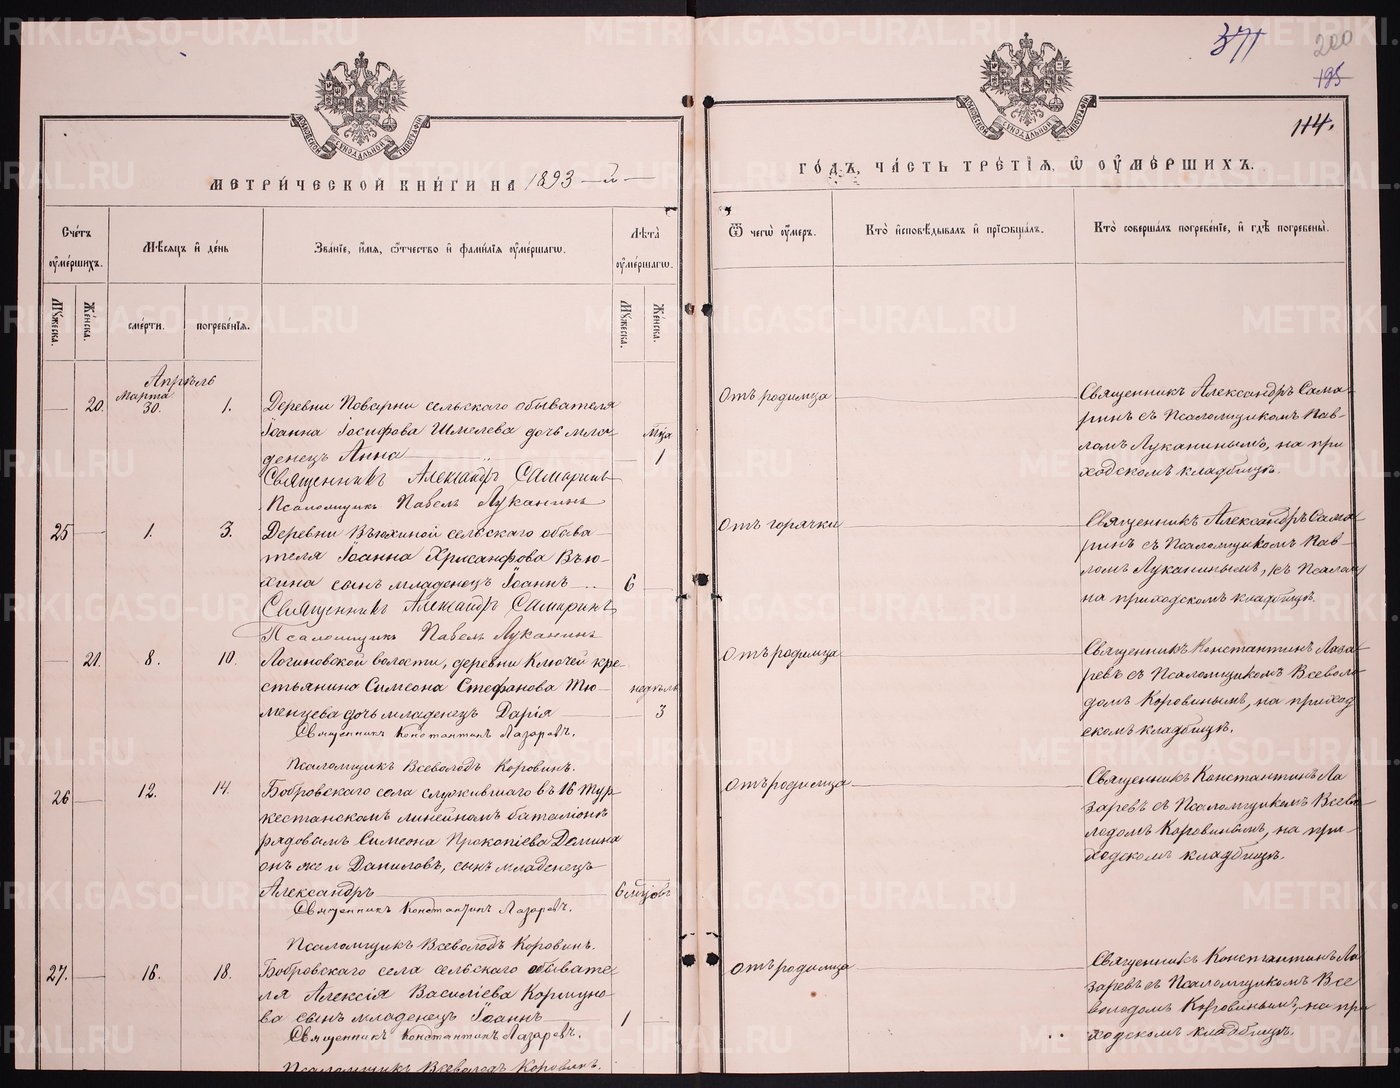 371
200
195
114.
МОСКОВСКОЙ СѴНОДАЛЬНОЙ ТИПОГРАФІИ
МОСКОВСКОЙ СѴНОДАЛЬНОЙ ТИПОГРАФІИ
МЕТРИ́ЧЕСКОЙ КНИ́ГИ НА 1893-й
ГО́ДЪ, ЧА́СТЬ ТРЕ́ТІЯ, Ѿ ОУ҆МЕ́РШИХЪ.
Сче́тъ оу҆ме́ршихъ.
Мѣ́сяцъ и҆ де́нь
Зва́ніе, и҆́мя, ѻ҆́тчество и҆ фами́лія оу҆ме́ршагѡ.
Лѣ́та оу҆ме́ршагѡ.
Ѿ чегѡ̀ оу҆́меръ.
Кто̀ и҆сповѣ́дывалъ и҆ прїѡбща́лъ.
Кто̀ соверша́лъ погребе́ніе, и҆ гдѣ̀ погребены̀.
Мꙋ́жеска.
Же́нска.
сме́рти.
погребе́нія.
Мꙋ́жеска.
Же́нска.
Апрѣль
20. Марта 30. 1.
Деревни Поварни сельскаго обывателя
Іоанна Іосифова Шмелева дочь мла-
денецъ Анна
Мца 1
Священникъ Александръ Самаринъ
Псаломщикъ Павелъ Луканинъ
Отъ родимца
Священникъ Александръ Сама-
ринъ съ Псаломщикомъ Пав-
ломъ Луканинымъ, на при-
ходскомъ кладбищѣ.
25 1. 3.
Деревни Вьюхиной сельскаго обыва-
теля Іоанна Хрисанфова Вью-
хина сынъ младенецъ Іоаннъ
6
Священникъ Александръ Самаринъ
Псаломщикъ Павелъ Луканинъ
Отъ горячки
Священникъ Александръ Сама-
ринъ съ Псаломщикомъ Пав-
ломъ Луканинымъ,
на приходскомъ кладбищѣ.
21. 8. 10.
Логиновской волости, деревни Ключей кре-
стьянина Симеона Стефанова Тю-
менцева дочь младенецъ Дарія
недѣль 3
Священникъ Константинъ Лазаревъ.
Псаломщикъ Всеволодъ Коровинъ.
Отъ родимца
Священникъ Константинъ Лаза-
ревъ съ Псаломщикомъ Всеволо-
домъ Коровинымъ, на приход-
скомъ кладбищѣ.
26 12. 14.
Бобровскаго села служившаго въ 16 Тур-
кестанскомъ линейномъ баталіонѣ
рядовымъ Симеона Прокопіева Демина
онъ же и Даниловъ, сынъ младенецъ
Александръ
6 мцовъ
Священникъ Константинъ Лазаревъ.
Псаломщикъ Всеволодъ Коровинъ.
Отъ родимца
Священникъ Константинъ Ла
заревъ съ Псаломщикомъ Всево
лодомъ Коровинымъ, на при-
ходскомъ кладбищѣ.
27. 16. 18.
Бобровскаго села сельскаго обывате-
ля Алексія Василіева Коршуно-
ва сынъ младенецъ Іоаннъ
1
Священникъ Константинъ Лазаревъ.
Псаломщикъ Всеволодъ Коровинъ.
Отъ родимца
Священникъ Константинъ Ла
заревъ съ Псаломщикомъ Все
володомъ Коровинымъ, на при
ходскомъ кладбищѣ.
METRIKI.GASO-URAL.RU